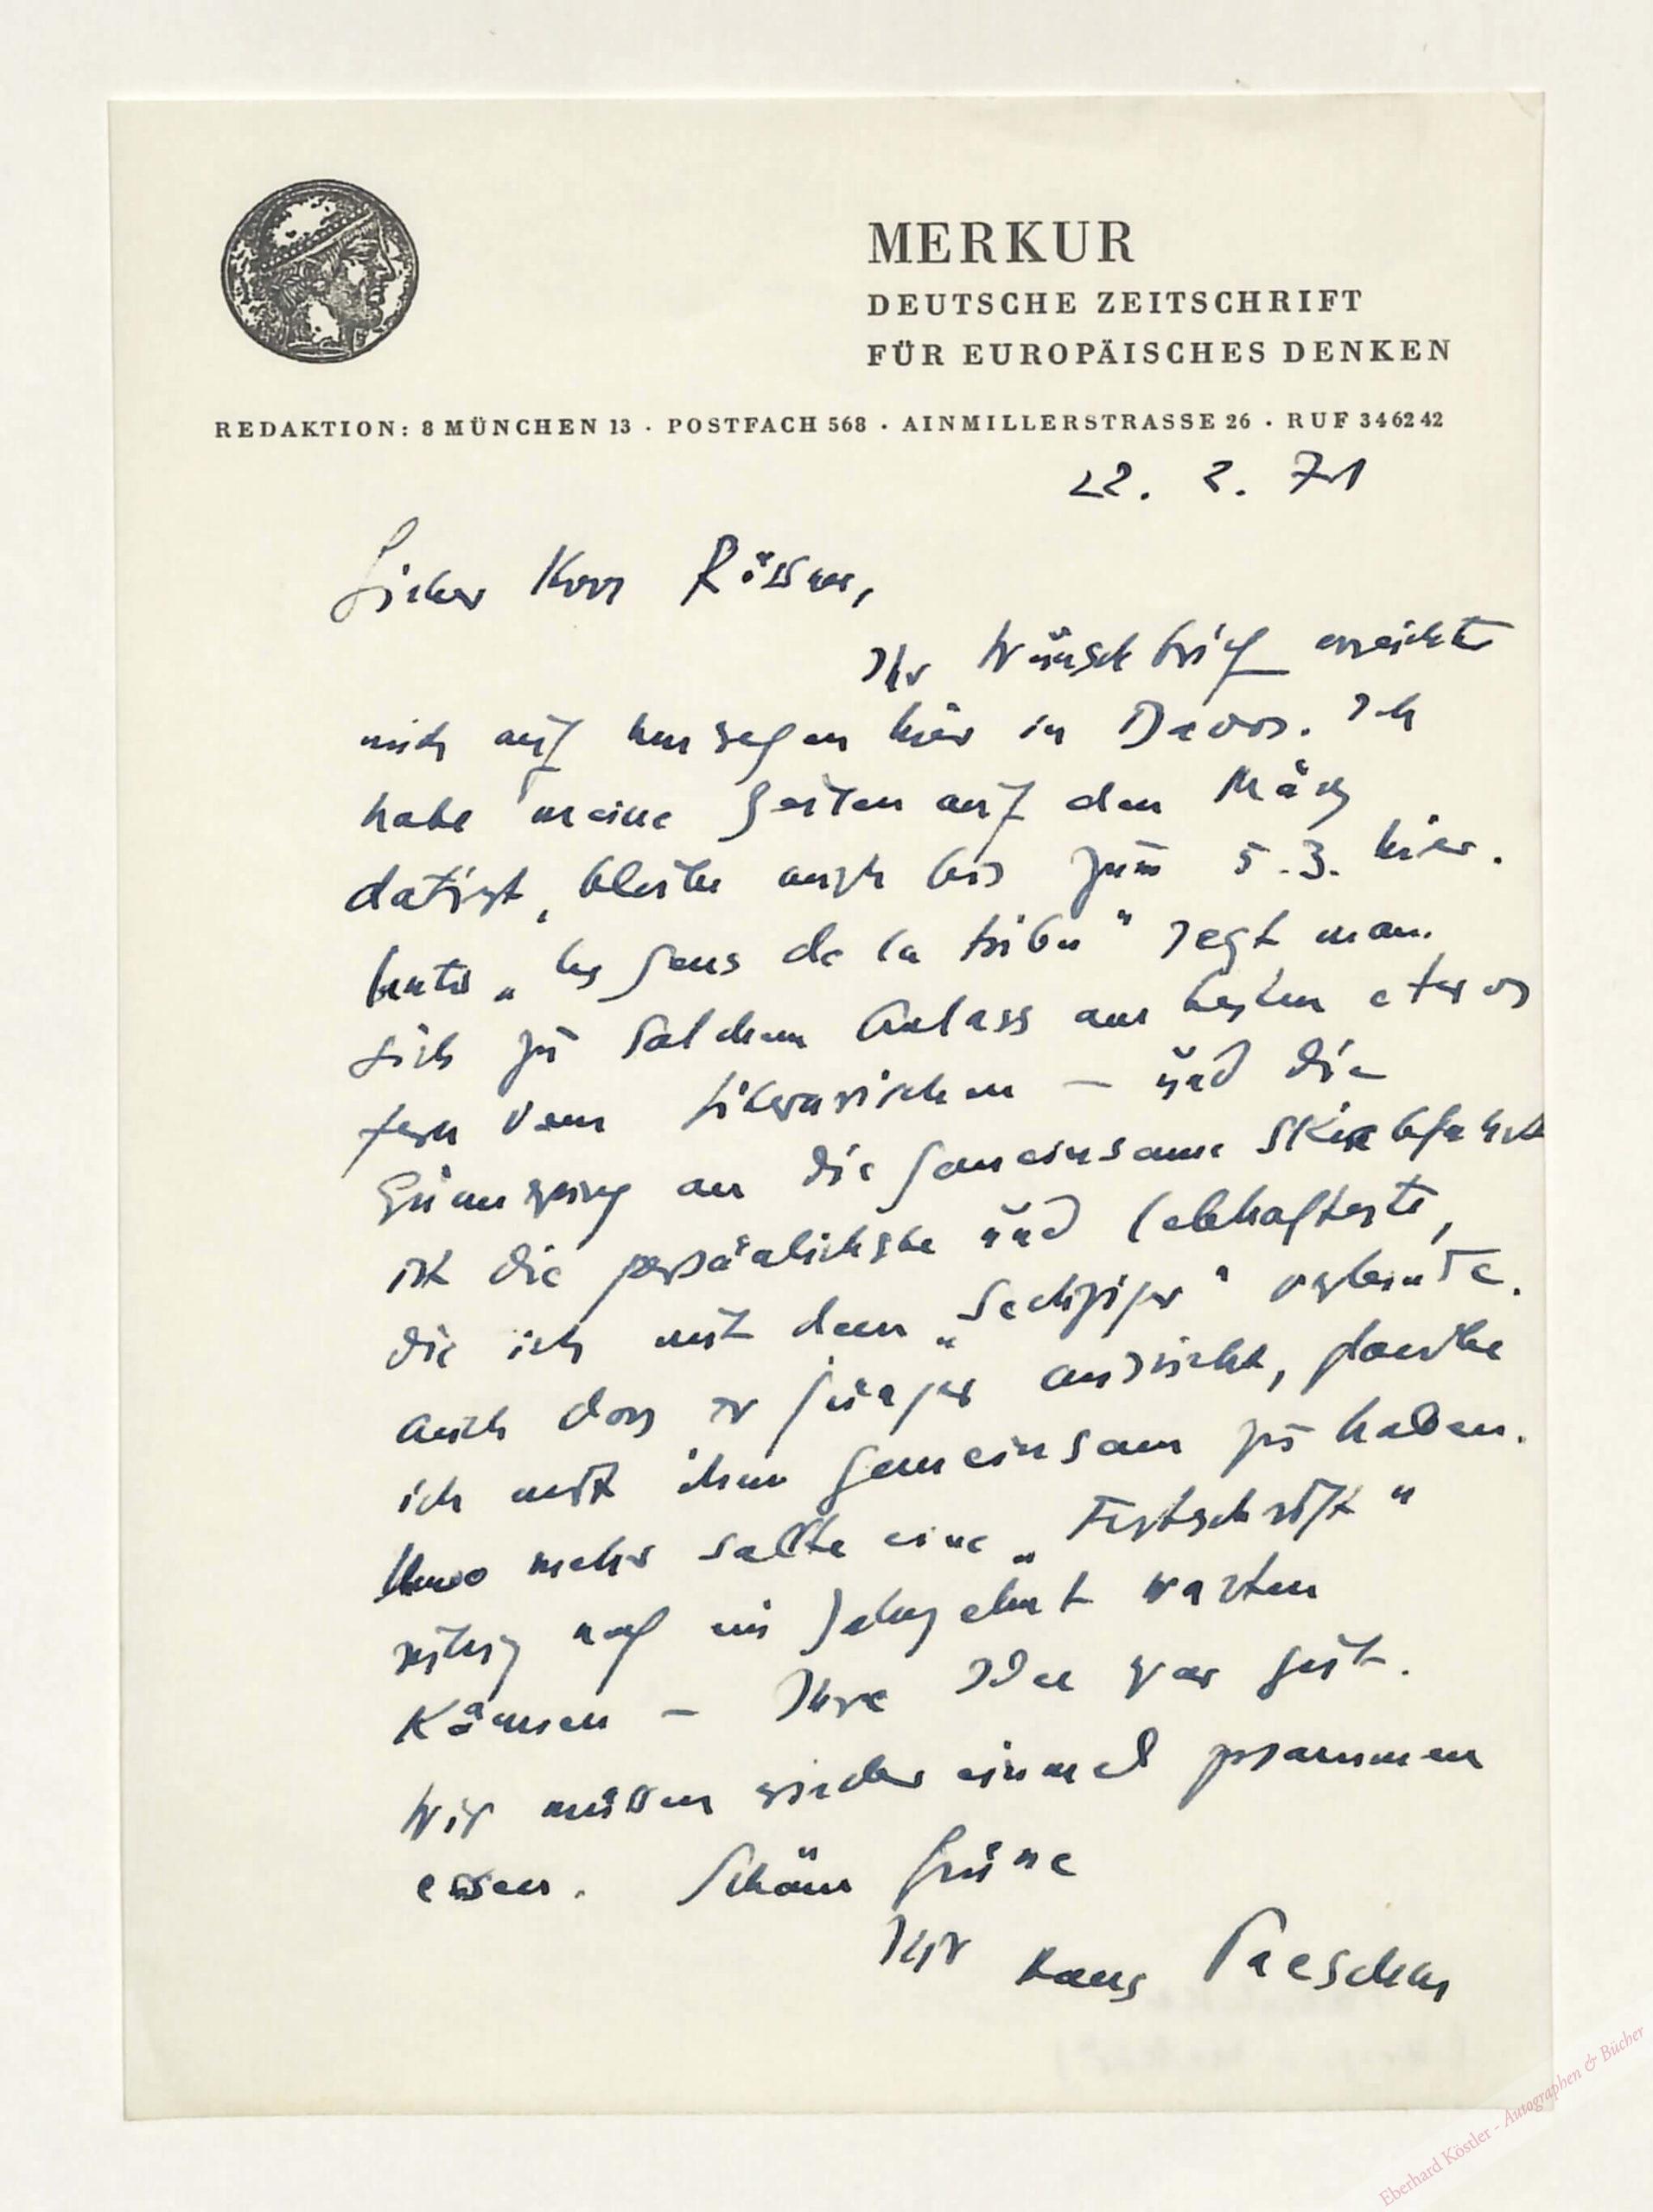 MERKUR
DEUTSCHE ZEITSCHRIFT
FÜR EUROPÄISCHES DENKEN
REDAKTION: 8 MÜNCHEN 13 · POSTFACH 568 · AINMILLERSTRASSE 26 · RUF 34 62 42
22. 2. 71
Lieber Herr Rössner,
Ihr Wünschbrief erreichte
mich auf Umwegen hier in Davos. Ich
habe meine Zeiten auf den März
datiert, bleibe auch bis zum 5.3. hier.
Unter „les gens de la tribu" sagt man
sich zu solchem Anlass am besten etwas
fern vom Literarischen – und die
Erinnerung an die gemeinsame Skiabfahrt
ist die persönlichste und lebhafteste,
die ich mit dem „Sechziger" verbinde.
Auch dass er jünger aussieht, glaube
ich mit ihm gemeinsam zu haben.
Umso mehr sollte eine „Festschrift"
ruhig noch ein Jahrzehnt warten
können – Ihre Idee war gut.
Wir müssen wieder einmal zusammen
essen. Schöne Grüße
Ihr Hans Paeschke
Eberhard Köstler - Autographen & Bücher